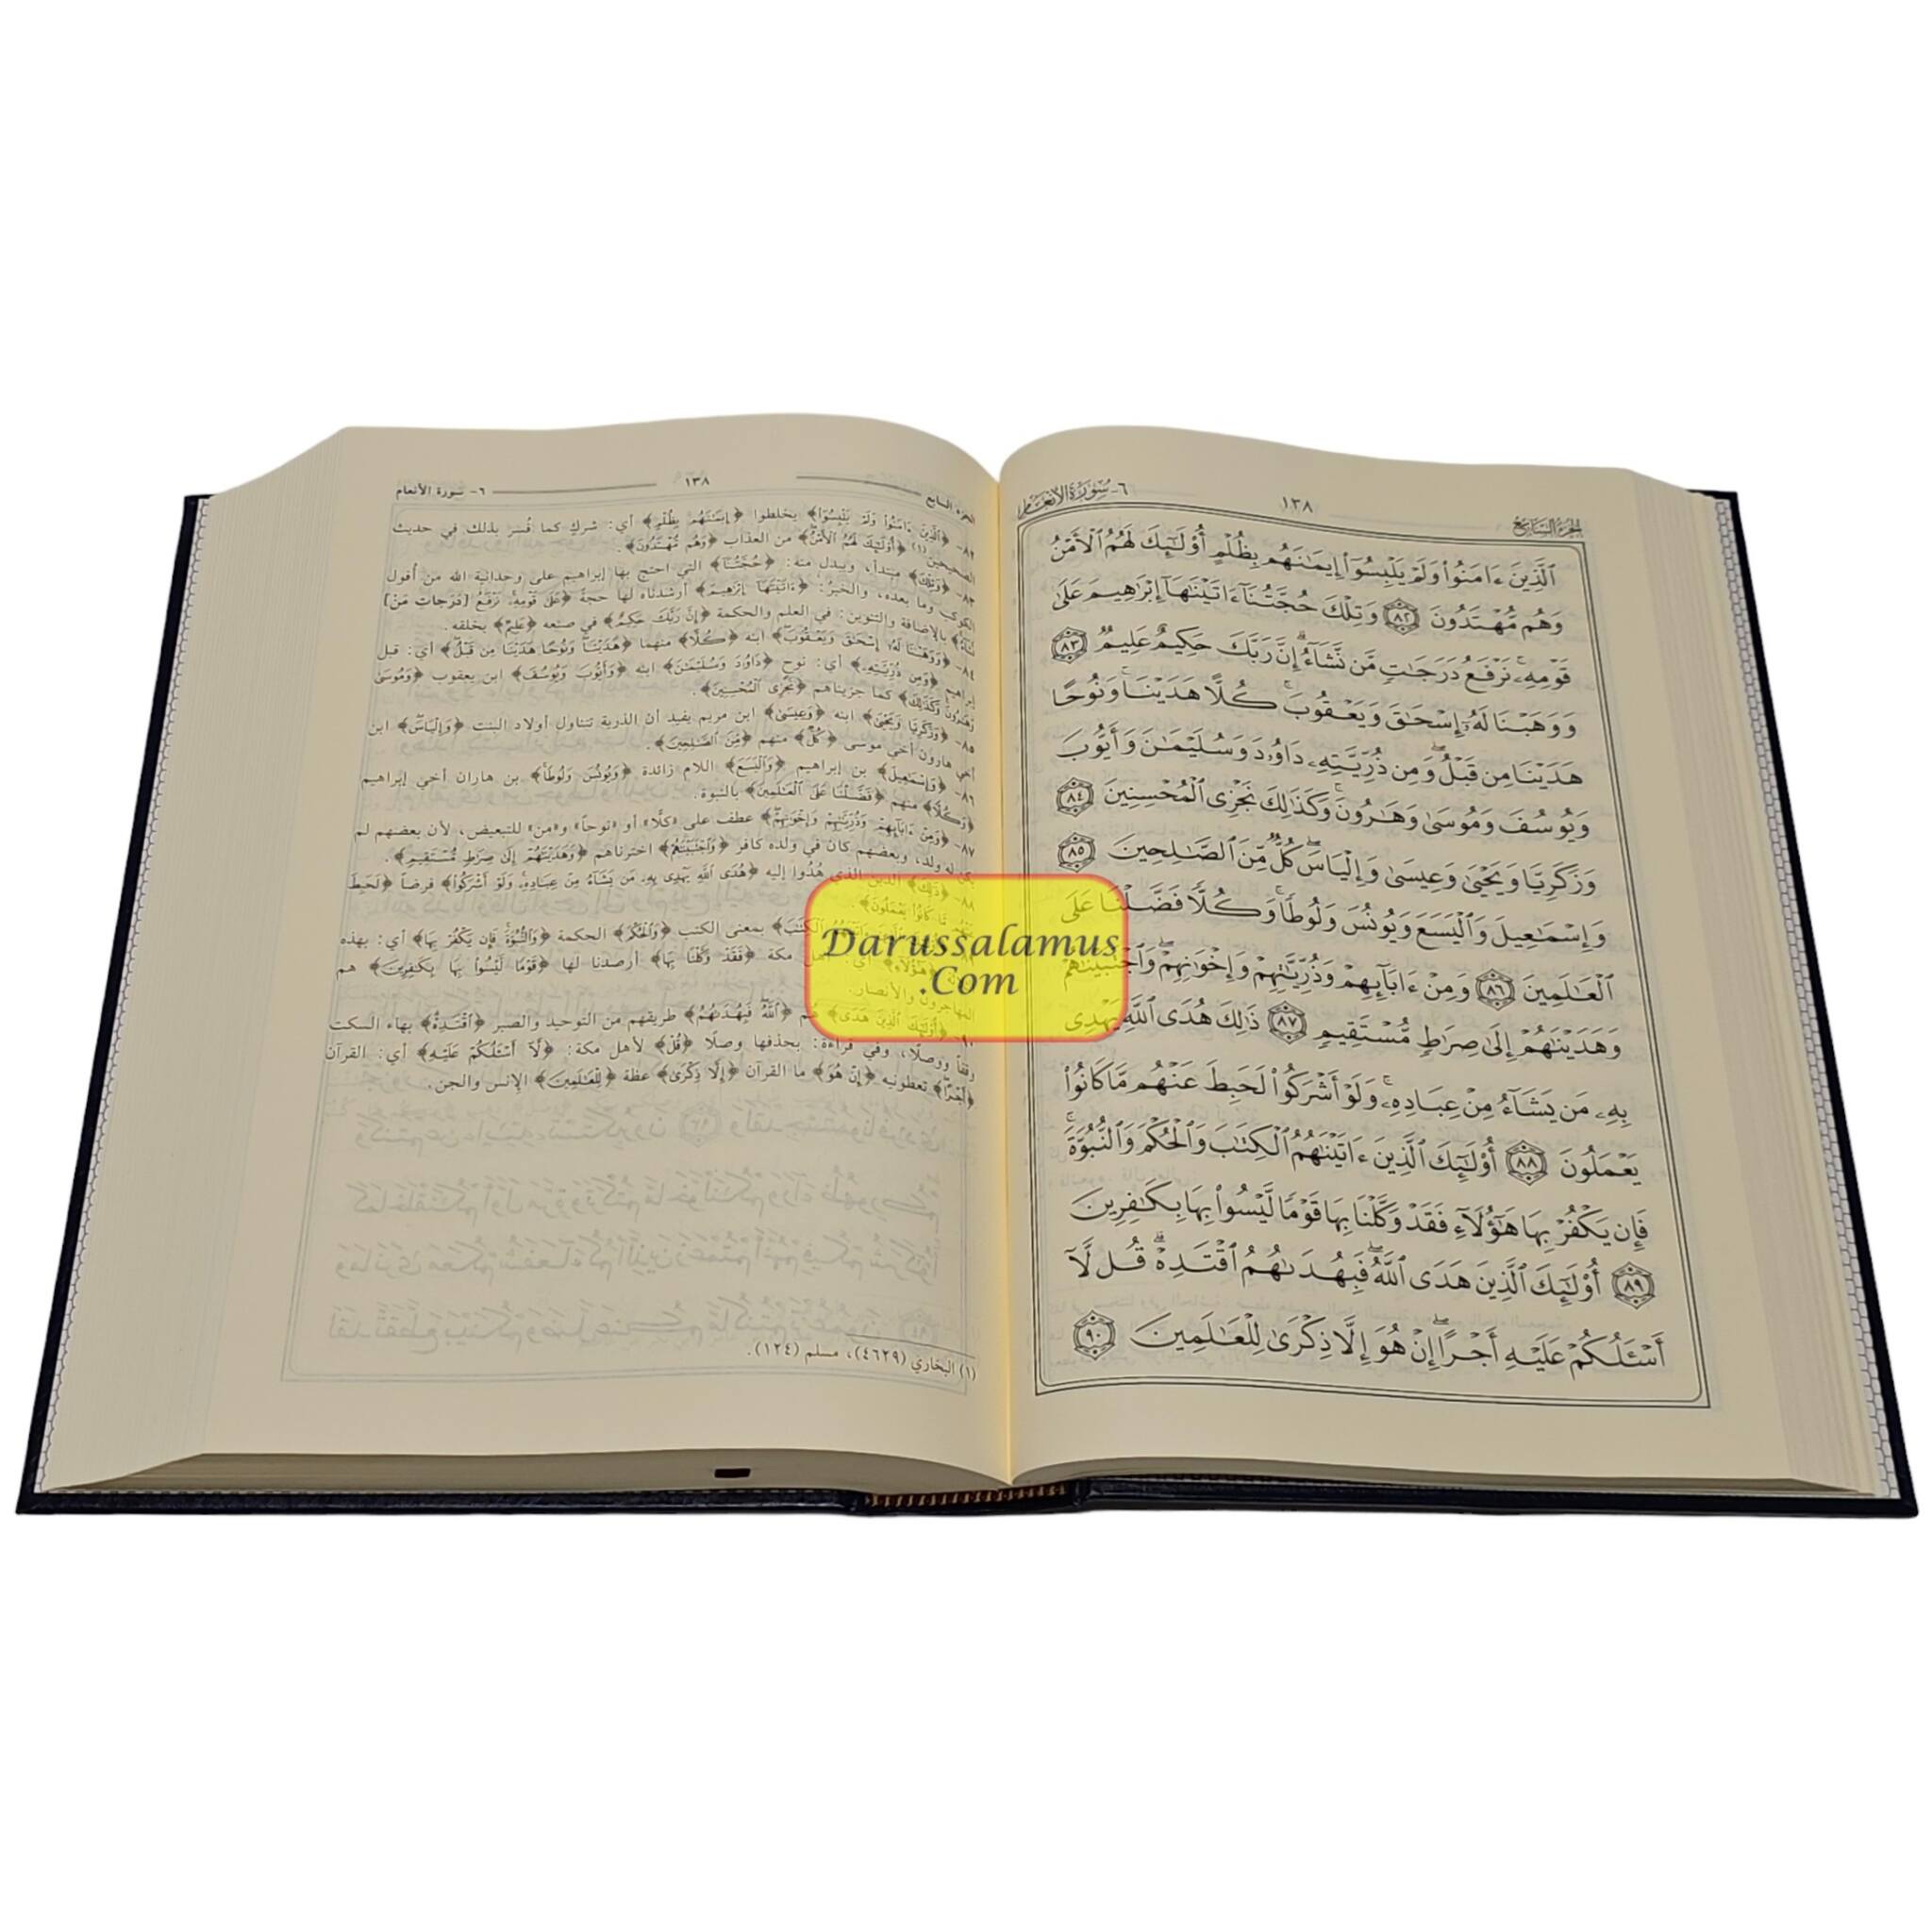 الجزء السابع
١٣٨
٦- سورة الأنعام
ٱلَّذِينَ ءَامَنُوا۟ وَلَمْ يَلْبِسُوٓا۟ إِيمَـٰنَهُم بِظُلْمٍ أُو۟لَـٰٓئِكَ لَهُمُ ٱلْأَمْنُ
وَهُم مُّهْتَدُونَ ٨٢ وَتِلْكَ حُجَّتُنَآ ءَاتَيْنَـٰهَآ إِبْرَٰهِيمَ عَلَىٰ
قَوْمِهِۦ ۚ نَرْفَعُ دَرَجَـٰتٍ مَّن نَّشَآءُ ۗ إِنَّ رَبَّكَ حَكِيمٌ عَلِيمٌ ٨٣
وَوَهَبْنَا لَهُۥٓ إِسْحَـٰقَ وَيَعْقُوبَ ۚ كُلًّا هَدَيْنَا ۚ وَنُوحًا
هَدَيْنَا مِن قَبْلُ ۖ وَمِن ذُرِّيَّتِهِۦ دَاوُۥدَ وَسُلَيْمَـٰنَ وَأَيُّوبَ
وَيُوسُفَ وَمُوسَىٰ وَهَـٰرُونَ ۚ وَكَذَٰلِكَ نَجْزِى ٱلْمُحْسِنِينَ ٨٤
وَزَكَرِيَّا وَيَحْيَىٰ وَعِيسَىٰ وَإِلْيَاسَ ۖ كُلٌّ مِّنَ ٱلصَّـٰلِحِينَ ٨٥
وَإِسْمَـٰعِيلَ وَٱلْيَسَعَ وَيُونُسَ وَلُوطًا ۚ وَكُلًّا فَضَّلْنَا عَلَى
ٱلْعَـٰلَمِينَ ٨٦ وَمِنْ ءَابَآئِهِمْ وَذُرِّيَّـٰتِهِمْ وَإِخْوَٰنِهِمْ ۖ وَٱجْتَبَيْنَـٰهُمْ
وَهَدَيْنَـٰهُمْ إِلَىٰ صِرَٰطٍ مُّسْتَقِيمٍ ٨٧ ذَٰلِكَ هُدَى ٱللَّهِ يَهْدِى
بِهِۦ مَن يَشَآءُ مِنْ عِبَادِهِۦ ۚ وَلَوْ أَشْرَكُوا۟ لَحَبِطَ عَنْهُم مَّا كَانُوا۟
يَعْمَلُونَ ٨٨ أُو۟لَـٰٓئِكَ ٱلَّذِينَ ءَاتَيْنَـٰهُمُ ٱلْكِتَـٰبَ وَٱلْحُكْمَ وَٱلنُّبُوَّةَ ۚ
فَإِن يَكْفُرْ بِهَا هَـٰٓؤُلَآءِ فَقَدْ وَكَّلْنَا بِهَا قَوْمًا لَّيْسُوا۟ بِهَا بِكَـٰفِرِينَ
٨٩ أُو۟لَـٰٓئِكَ ٱلَّذِينَ هَدَى ٱللَّهُ ۖ فَبِهُدَىٰهُمُ ٱقْتَدِهْ ۗ قُل لَّآ
أَسْـَٔلُكُمْ عَلَيْهِ أَجْرًا ۖ إِنْ هُوَ إِلَّا ذِكْرَىٰ لِلْعَـٰلَمِينَ ٩٠
الجزء السابع
١٣٨
٦- سورة الأنعام
٨٢- ﴿ٱلَّذِينَ ءَامَنُوا۟ وَلَمْ يَلْبِسُوٓا۟﴾ يخلطوا ﴿إِيمَـٰنَهُم بِظُلْمٍ﴾ أي: شرك كما فُسر بذلك في حديث
الصحيحين (١) ﴿أُو۟لَـٰٓئِكَ لَهُمُ ٱلْأَمْنُ﴾ من العذاب ﴿وَهُم مُّهْتَدُونَ﴾.
٨٣- ﴿وَتِلْكَ﴾ مبتدأ، ويبدل منه: ﴿حُجَّتُنَآ﴾ التي احتج بها إبراهيم على وحدانية الله من أفول
الكوكب وما بعده، والخبر: ﴿ءَاتَيْنَـٰهَآ إِبْرَٰهِيمَ﴾ أرشدناه لها حجة ﴿عَلَىٰ قَوْمِهِۦ ۚ نَرْفَعُ [دَرَجاتِ مَنْ]
نَّشَآءُ﴾ بالإضافة والتنوين: في العلم والحكمة ﴿إِنَّ رَبَّكَ حَكِيمٌ﴾ في صنعه ﴿عَلِيمٌ﴾ بخلقه.
٨٤- ﴿وَوَهَبْنَا لَهُۥٓ إِسْحَـٰقَ وَيَعْقُوبَ﴾ ابنه ﴿كُلًّا﴾ منهما ﴿هَدَيْنَا ۚ وَنُوحًا هَدَيْنَا مِن قَبْلُ﴾ أي: قبل
إبراهيم ﴿وَمِن ذُرِّيَّتِهِۦ﴾ أي: نوح ﴿دَاوُۥدَ وَسُلَيْمَـٰنَ﴾ ابنه ﴿وَأَيُّوبَ وَيُوسُفَ﴾ ابن يعقوب ﴿وَمُوسَىٰ
وَهَـٰرُونَ ۚ وَكَذَٰلِكَ﴾ كما جزيناهم ﴿نَجْزِى ٱلْمُحْسِنِينَ﴾.
٨٥- ﴿وَزَكَرِيَّا وَيَحْيَىٰ﴾ ابنه ﴿وَعِيسَىٰ﴾ ابن مريم يفيد أن الذرية تتناول أولاد البنت ﴿وَإِلْيَاسَ﴾ ابن
أخي هارون أخي موسى ﴿كُلٌّ﴾ منهم ﴿مِّنَ ٱلصَّـٰلِحِينَ﴾.
٨٦- ﴿وَإِسْمَـٰعِيلَ﴾ بن إبراهيم ﴿وَٱلْيَسَعَ﴾ اللام زائدة ﴿وَيُونُسَ وَلُوطًا﴾ بن هاران أخي إبراهيم
﴿وَكُلًّا﴾ منهم ﴿فَضَّلْنَا عَلَى ٱلْعَـٰلَمِينَ﴾ بالنبوة.
٨٧- ﴿وَمِنْ ءَابَآئِهِمْ وَذُرِّيَّـٰتِهِمْ وَإِخْوَٰنِهِمْ﴾ عطف على «كلًّا» أو «نوحاً» و«من» للتبعيض، لأن بعضهم لم
يكن له ولد، وبعضهم كان في ولده كافر ﴿وَٱجْتَبَيْنَـٰهُمْ﴾ اخترناهم ﴿وَهَدَيْنَـٰهُمْ إِلَىٰ صِرَٰطٍ مُّسْتَقِيمٍ﴾.
٨٨- ﴿ذَٰلِكَ﴾ الدين الذي هُدُوا إليه ﴿هُدَى ٱللَّهِ يَهْدِى بِهِۦ مَن يَشَآءُ مِنْ عِبَادِهِۦ ۚ وَلَوْ أَشْرَكُوا۟﴾ فرضاً ﴿لَحَبِطَ
مَّا كَانُوا۟ يَعْمَلُونَ﴾.
ٱلْكِتَـٰبَ﴾ بمعنى الكتب ﴿وَٱلْحُكْمَ﴾ الحكمة ﴿وَٱلنُّبُوَّةَ ۚ فَإِن يَكْفُرْ بِهَا﴾ أي: بهذه
﴿هَـٰٓؤُلَآءِ﴾ أي: أهل مكة ﴿فَقَدْ وَكَّلْنَا بِهَا﴾ أرصدنا لها ﴿قَوْمًا لَّيْسُوا۟ بِهَا بِكَـٰفِرِينَ﴾ هم
المهاجرون والأنصار.
٩٠- ﴿أُو۟لَـٰٓئِكَ ٱلَّذِينَ هَدَى﴾ هُم ﴿ٱللَّهُ ۖ فَبِهُدَىٰهُمُ﴾ طريقهم من التوحيد والصبر ﴿ٱقْتَدِهْ﴾ بهاء السكت
وقفاً ووصلًا، وفي قراءة: بحذفها وصلًا ﴿قُل﴾ لأهل مكة: ﴿لَّآ أَسْـَٔلُكُمْ عَلَيْهِ﴾ أي: القرآن
﴿أَجْرًا﴾ تعطونيه ﴿إِنْ هُوَ﴾ ما القرآن ﴿إِلَّا ذِكْرَىٰ﴾ عظة ﴿لِلْعَـٰلَمِينَ﴾ الإنس والجن.
(١) البخاري (٤٦٢٩)، مسلم (١٢٤).
Darussalamus
.Com